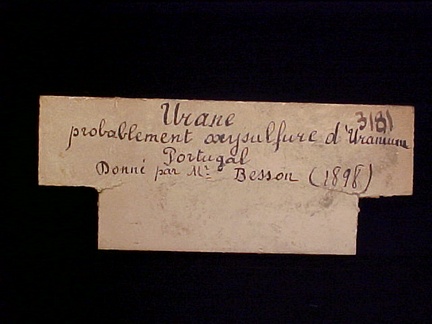 Urane
3181
probablement oxysulfure d'Uranium
Portugal
Donné par Mr. Besson (1898)